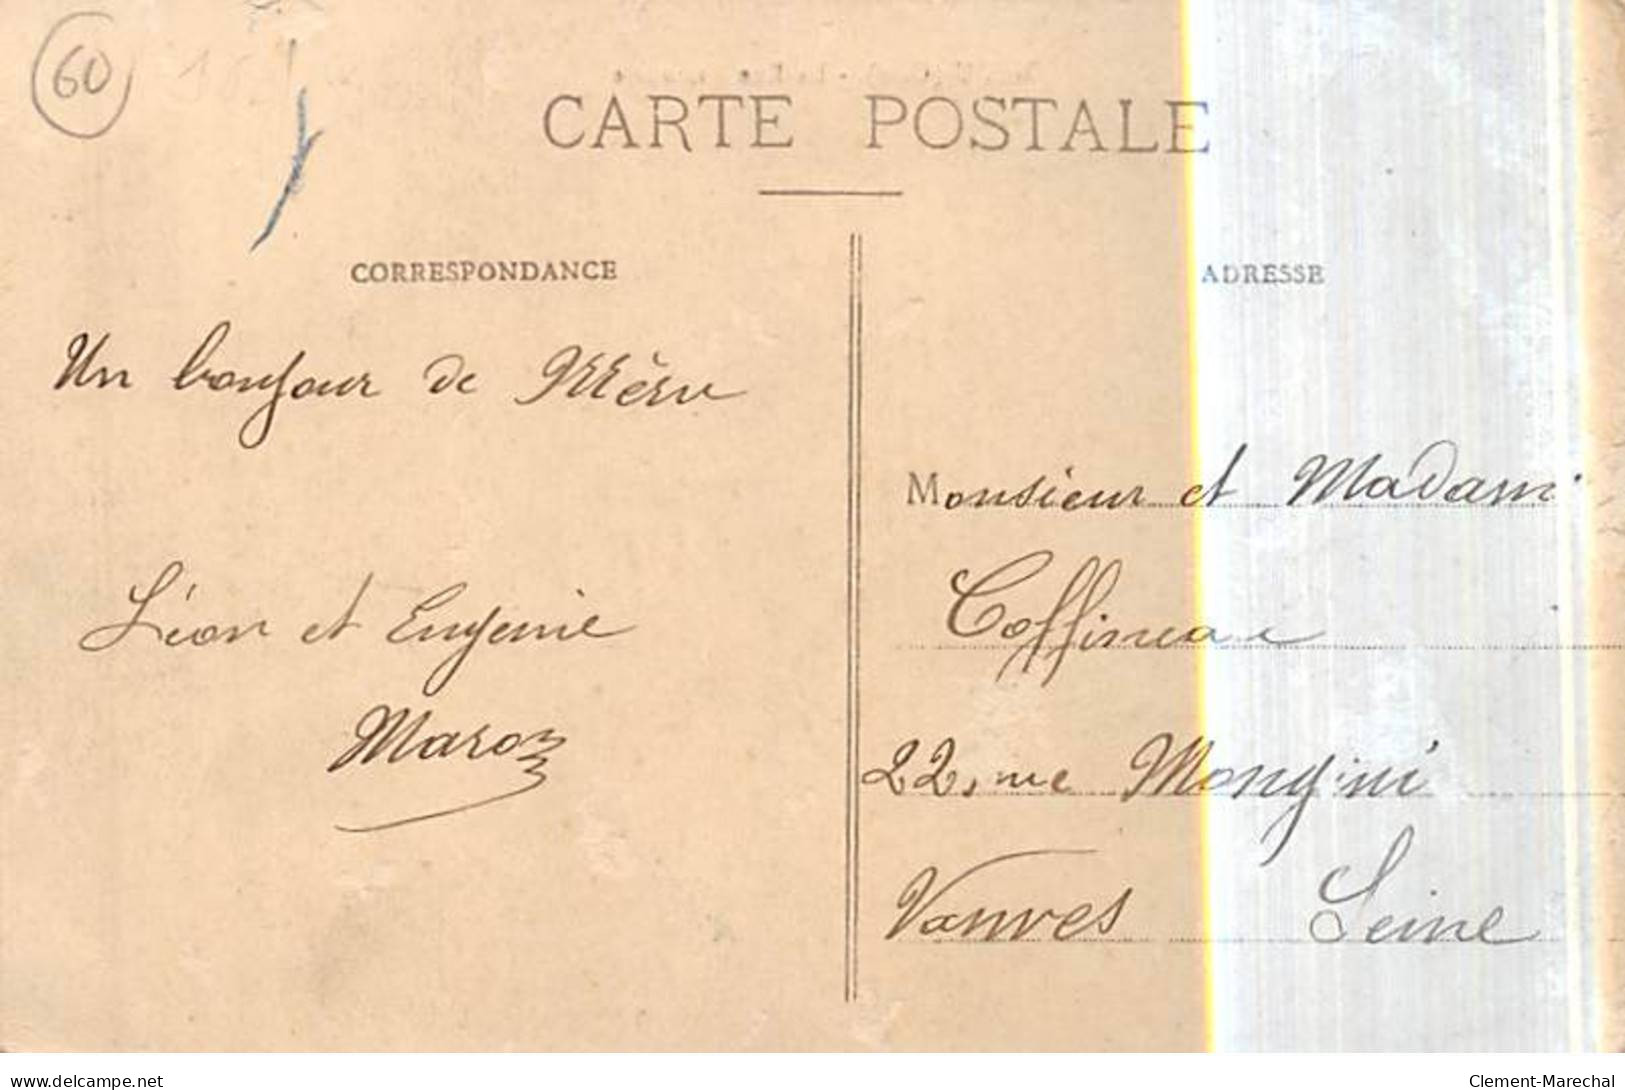 60
CARTE POSTALE
CORRESPONDANCE
ADRESSE
Un bonjour de Méru
Léon et Eugenie
Maro
Monsieur et Madame
Coffineau
22, rue
Vanves Seine
delcampe.net
Clement-Marechal